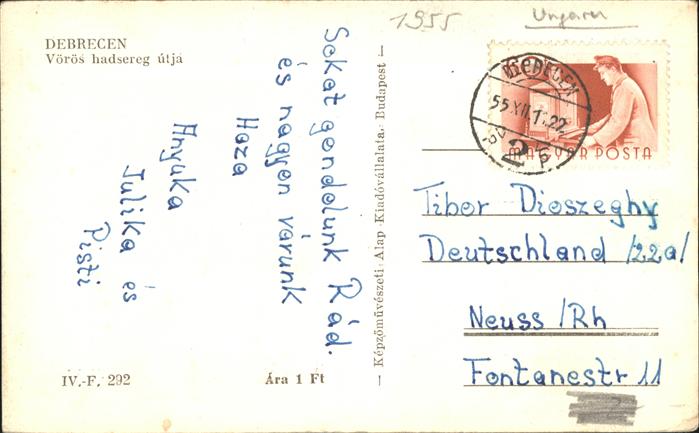 1955
Ungarn
DEBRECEN
Vörös hadsereg útja
Sokat gondolunk Rád.
és nagyon várunk
Haza
Anyuka
Julika és
Pisti
IV.-F. 292
Ára 1 Ft
Képzőművészeti Alap Kiadóvállalata, Budapest
DEBRECEN
55.XII.1.22
2
MAGYAR POSTA
Tibor Dioszeghy
Deutschland /22a/
Neuss /Rh
Fontanestr 11